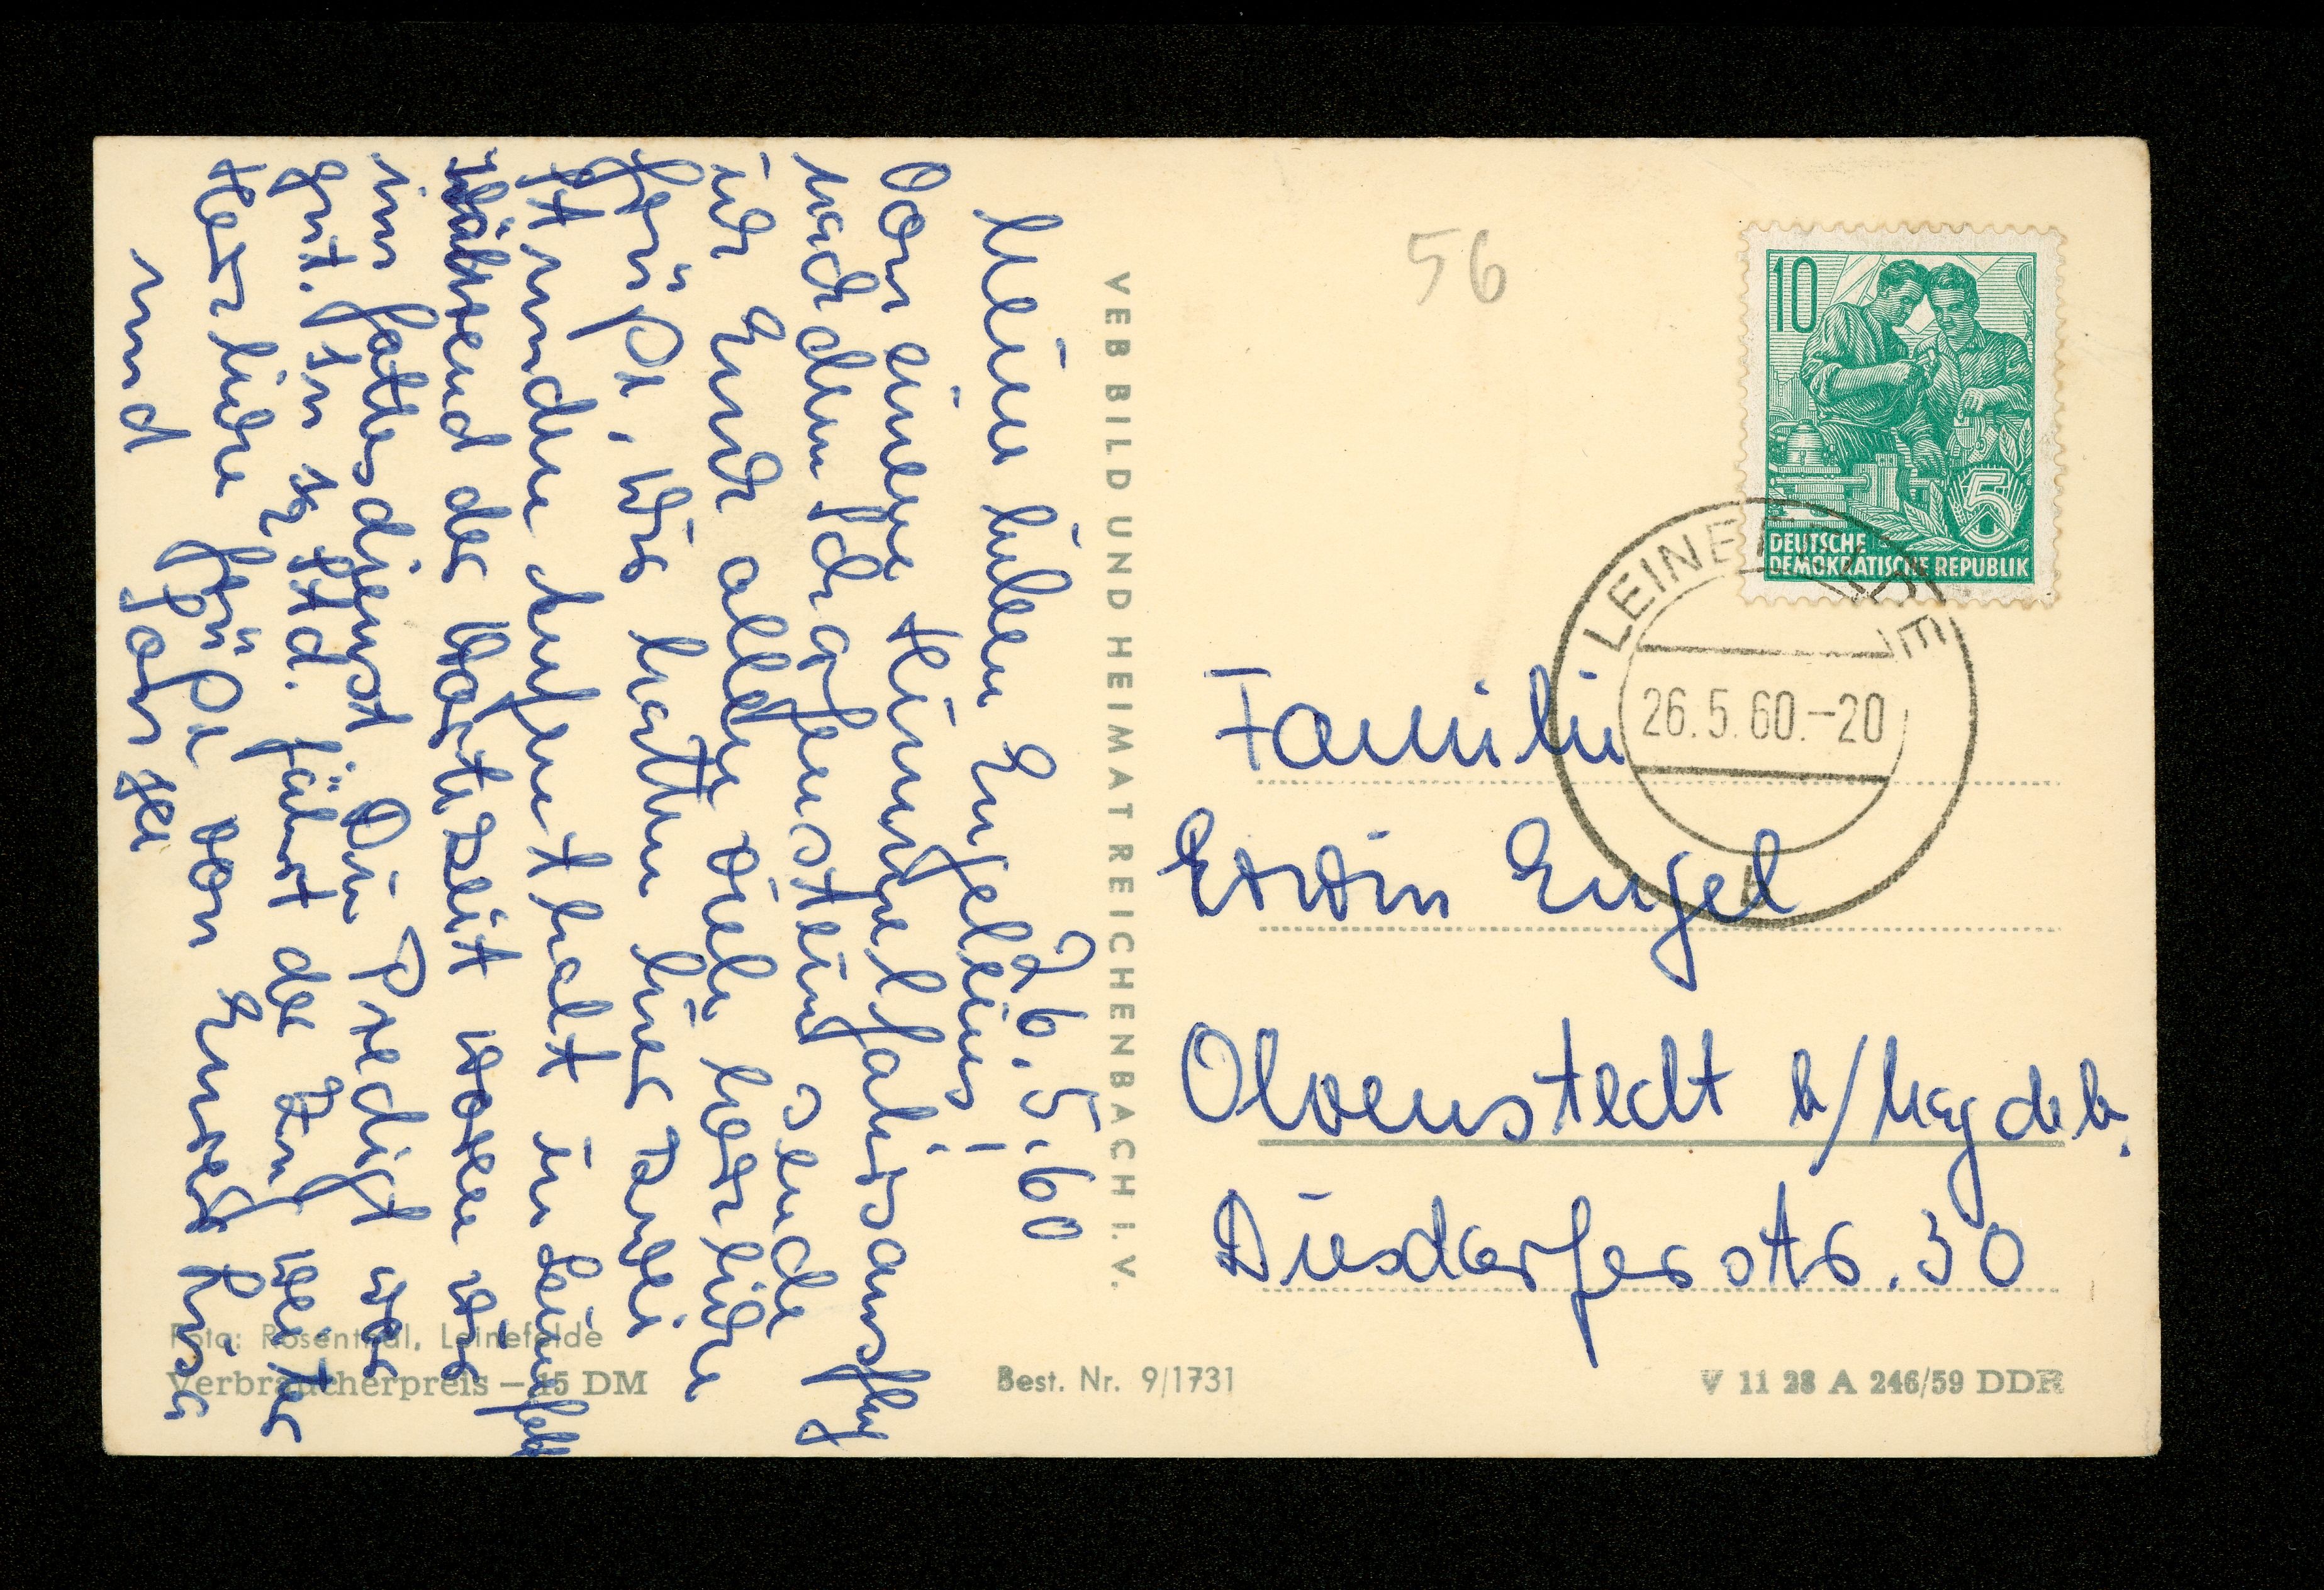 26.5.60
Meine lieben Engeleins!
Von einem Himmelfahrtsausflug
nach dem Scharfenstein sende
ich Euch allen viele herzliche
Grüße. Wir hatten hier zwei
Stunden Aufenthalt in Leinefelde
während der Wartezeit waren wir
im Gottesdienst. Die Predigt war
gut. In 1/2 Std. fährt der Zug weiter
Herzliche Grüße von Eurer
und
VEB BILD UND HEIMAT REICHENBACH I. V.
Foto: Rosenthal, Leinefelde
Verbraucherpreis – 15 DM
Best. Nr. 9/1731
V 11 28 A 246/59 DDR
56
10
5
DEUTSCHE
DEMOKRATISCHE REPUBLIK
LEINEFELDE
26.5.60.–20
Familie
Erwin Engel
Olvenstedt b/Magdeb.
Diesdorferstr. 30